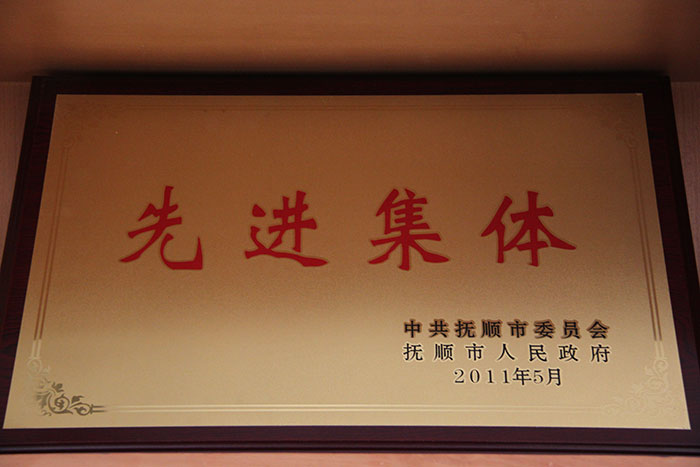 先进集体
中共抚顺市委员会
抚顺市人民政府
2011年5月